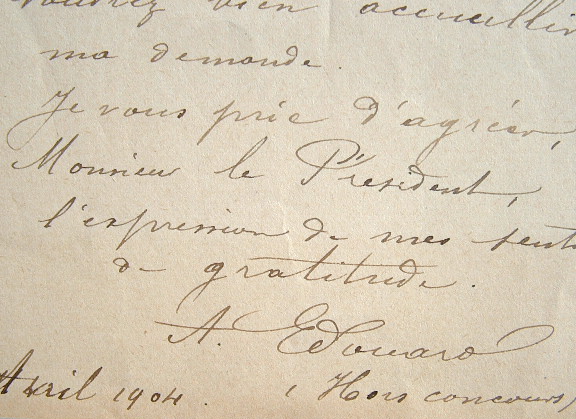 voudrez bien accueillir
ma demande.
Je vous prie d'agréer,
Monsieur le Président,
l'expression de mes sent
de gratitude.
A. Edouard
Avril 1904. (Hors concours)